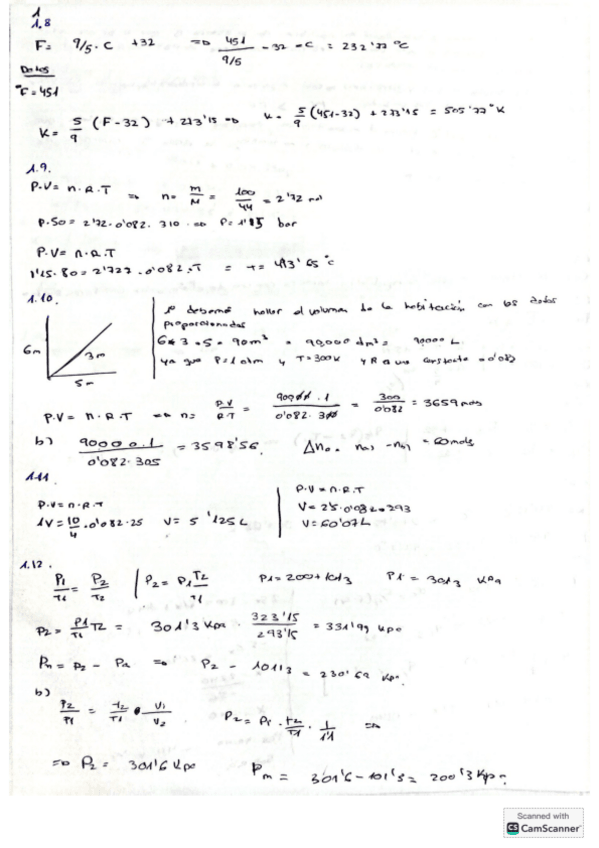 1
1.8
F= 9/5 · C +32 => 451/(9/5) - 32 = C = 232'77 ºC
Datos
ºF = 451
K = 5/9 (F-32) + 273'15 => K = 5/9 (451-32) + 273'15 = 505'77 ºK
1.9.
P·V = n·R·T => n = m/M = 100/44 = 2'72 mol
P·50 = 2'72·0'082·310 => P = 1'15 bar
P·V = n·R·T
1'15·80 = 2'727·0'082·T = T = 413'65 ºC
1.10.
1º debemos hallar el volumen de la habitación con los datos
proporcionados
6·3·5 = 90m³ = 90,000 dm³ = 90000 L
ya que P=1 atm y T=300K y R a una constante = 0'082
6m
3m
5m
P·V = n·R·T => n = P·V/R·T = 90000·1/0'082·300 = 300/0'082 = 3659 mols
b) 90000·1/0'082·305 = 3598'56. Δn = n1 - n2 = 60 mols
1.11
P·V = n·R·T
1V = 10/4·0'082·25 V = 5'125 L
P·V = n·R·T
V = 25·0'082·293
V = 60'07 L
1.12.
P1/T1 = P2/T2 P2 = P1 T2/T1 P1 = 200+101'3 P1 = 301'3 kPa
P2 = P1/T1 T2 = 301'3 kPa · 323'15/293'15 = 331'99 kPa
Pm = P2 - Pa => P2 - 101'3 = 230'69 kPa.
b)
P2/P1 = T2/T1 · V1/V2 P2 = P1 · T2/T1 · 1/1'1 =>
=> P2 = 301'6 kPa Pm = 301'6 - 101'3 = 200'3 kPa
Scanned with
CS CamScanner